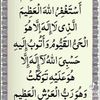 أَسْتَغْفِرُ اللهَ الْعَظِيمَ
الَّذِي لَا إِلَهَ إِلَّا هُوَ
الْحَيُّ الْقَيُّومُ وَأَتُوبُ إِلَيْهِ
حَسْبِيَ اللهُ لَا إِلَهَ إِلَّا
هُوَ عَلَيْهِ تَوَكَّلْتُ
وَهُوَ رَبُّ الْعَرْشِ الْعَظِيمِ